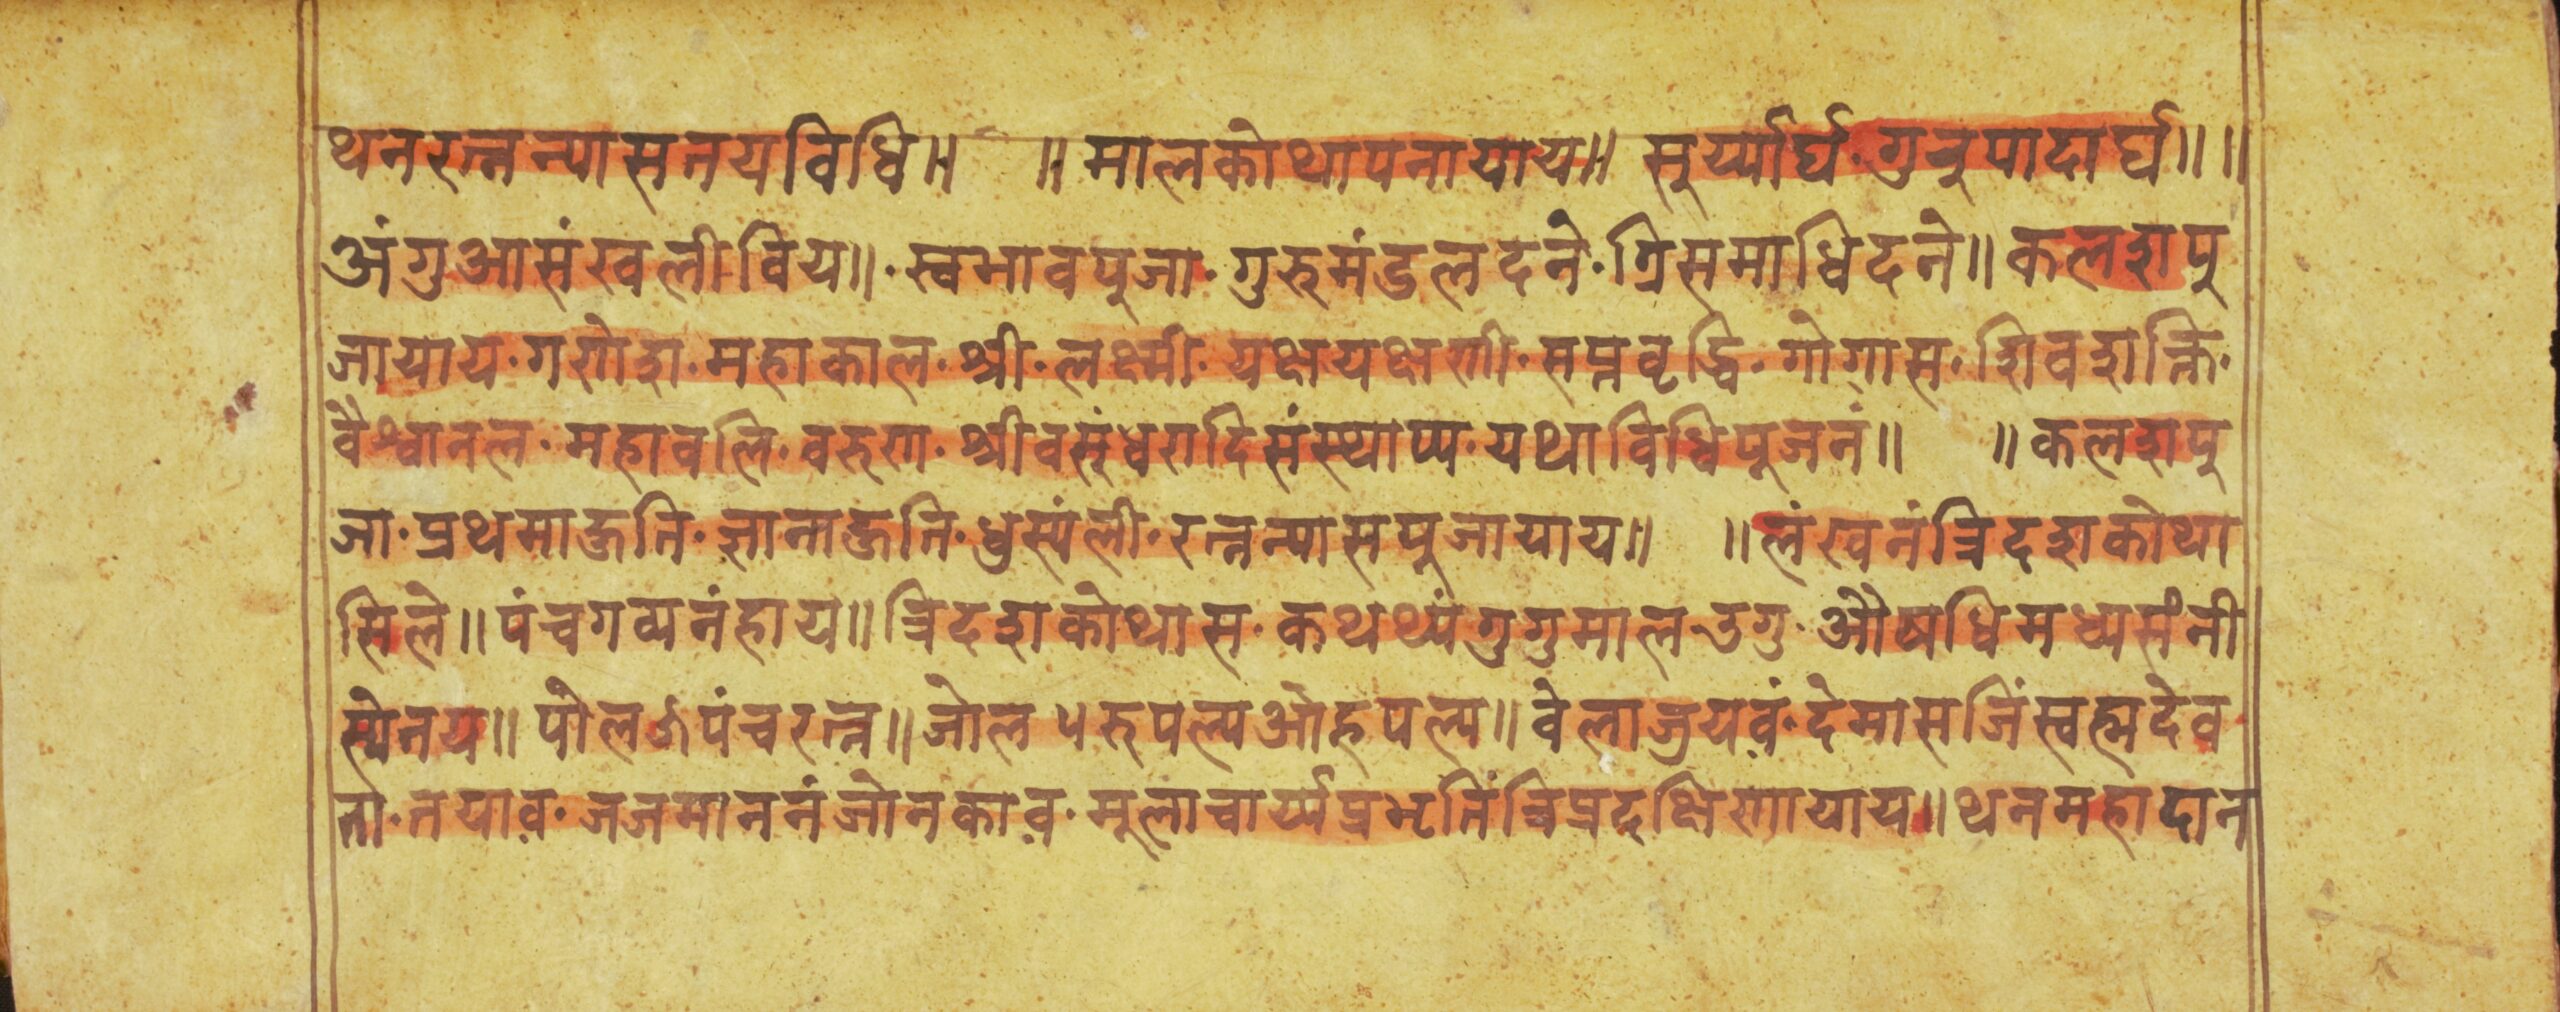 थनरत्नन्यासनयविधि॥ ॥मालकोथापनायाय॥ सूर्य्यार्घ·गुरुपादार्घ॥॥
अंगुआसंखलीविय॥·स्वभावपुजा·गुरुमंडलदने·त्रिसमाधिदने॥कलशपु
जायाय·गणेश·महाकाल·श्री·लक्ष्मी·यक्षयक्षणी·सप्तवृद्धि·गोग्रास·शिवशक्ति·
वैश्वानल·महावलि·वरुण·श्रीवसुंधरादिसंस्थाप्य·यथाविधिपूजनं॥ ॥कलशपु
जा·प्रथमाहुति·ज्ञानाहुति·धुस्यंली·रत्नन्यासपुजायाय॥ ॥लंखनंत्रिदशकोथा
सिले॥पंचगव्यनंहाय॥त्रिदशकोथास·कथथ्यंगुगुमालउगु·औषधिमध्यसंनी
स्येनय॥पोलजेपंचरत्न॥जोल५रुपल्यओहपल्य॥वेलाज्रयवं·देमासजिंस्वह्मदेव
ता·नयाव·जजमाननंजोनकाव·मूलाचार्य्यप्रभृतिंत्रिप्रदक्षिणायाय॥थनमहादान